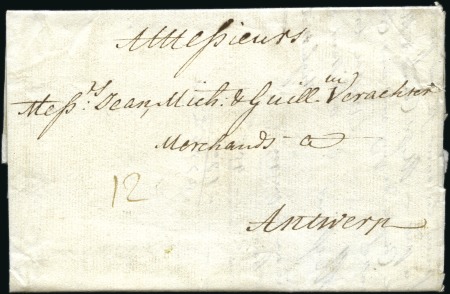 A Messieurs
Mess.rs Jean, Mich: & Guill.m Verachter
Merchands a
12
Antwerp